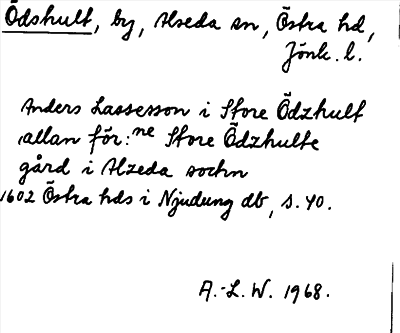 Ödshult, by, Alseda sn, Östra hd,
Jönk. l.
Anders Lassesson i Store Ödzhult
allan för:ne Store Ödzhulte
gård i Alzeda sochn
1602 Östra hds i Njudung db, s. 40.
A.-L. W. 1968.